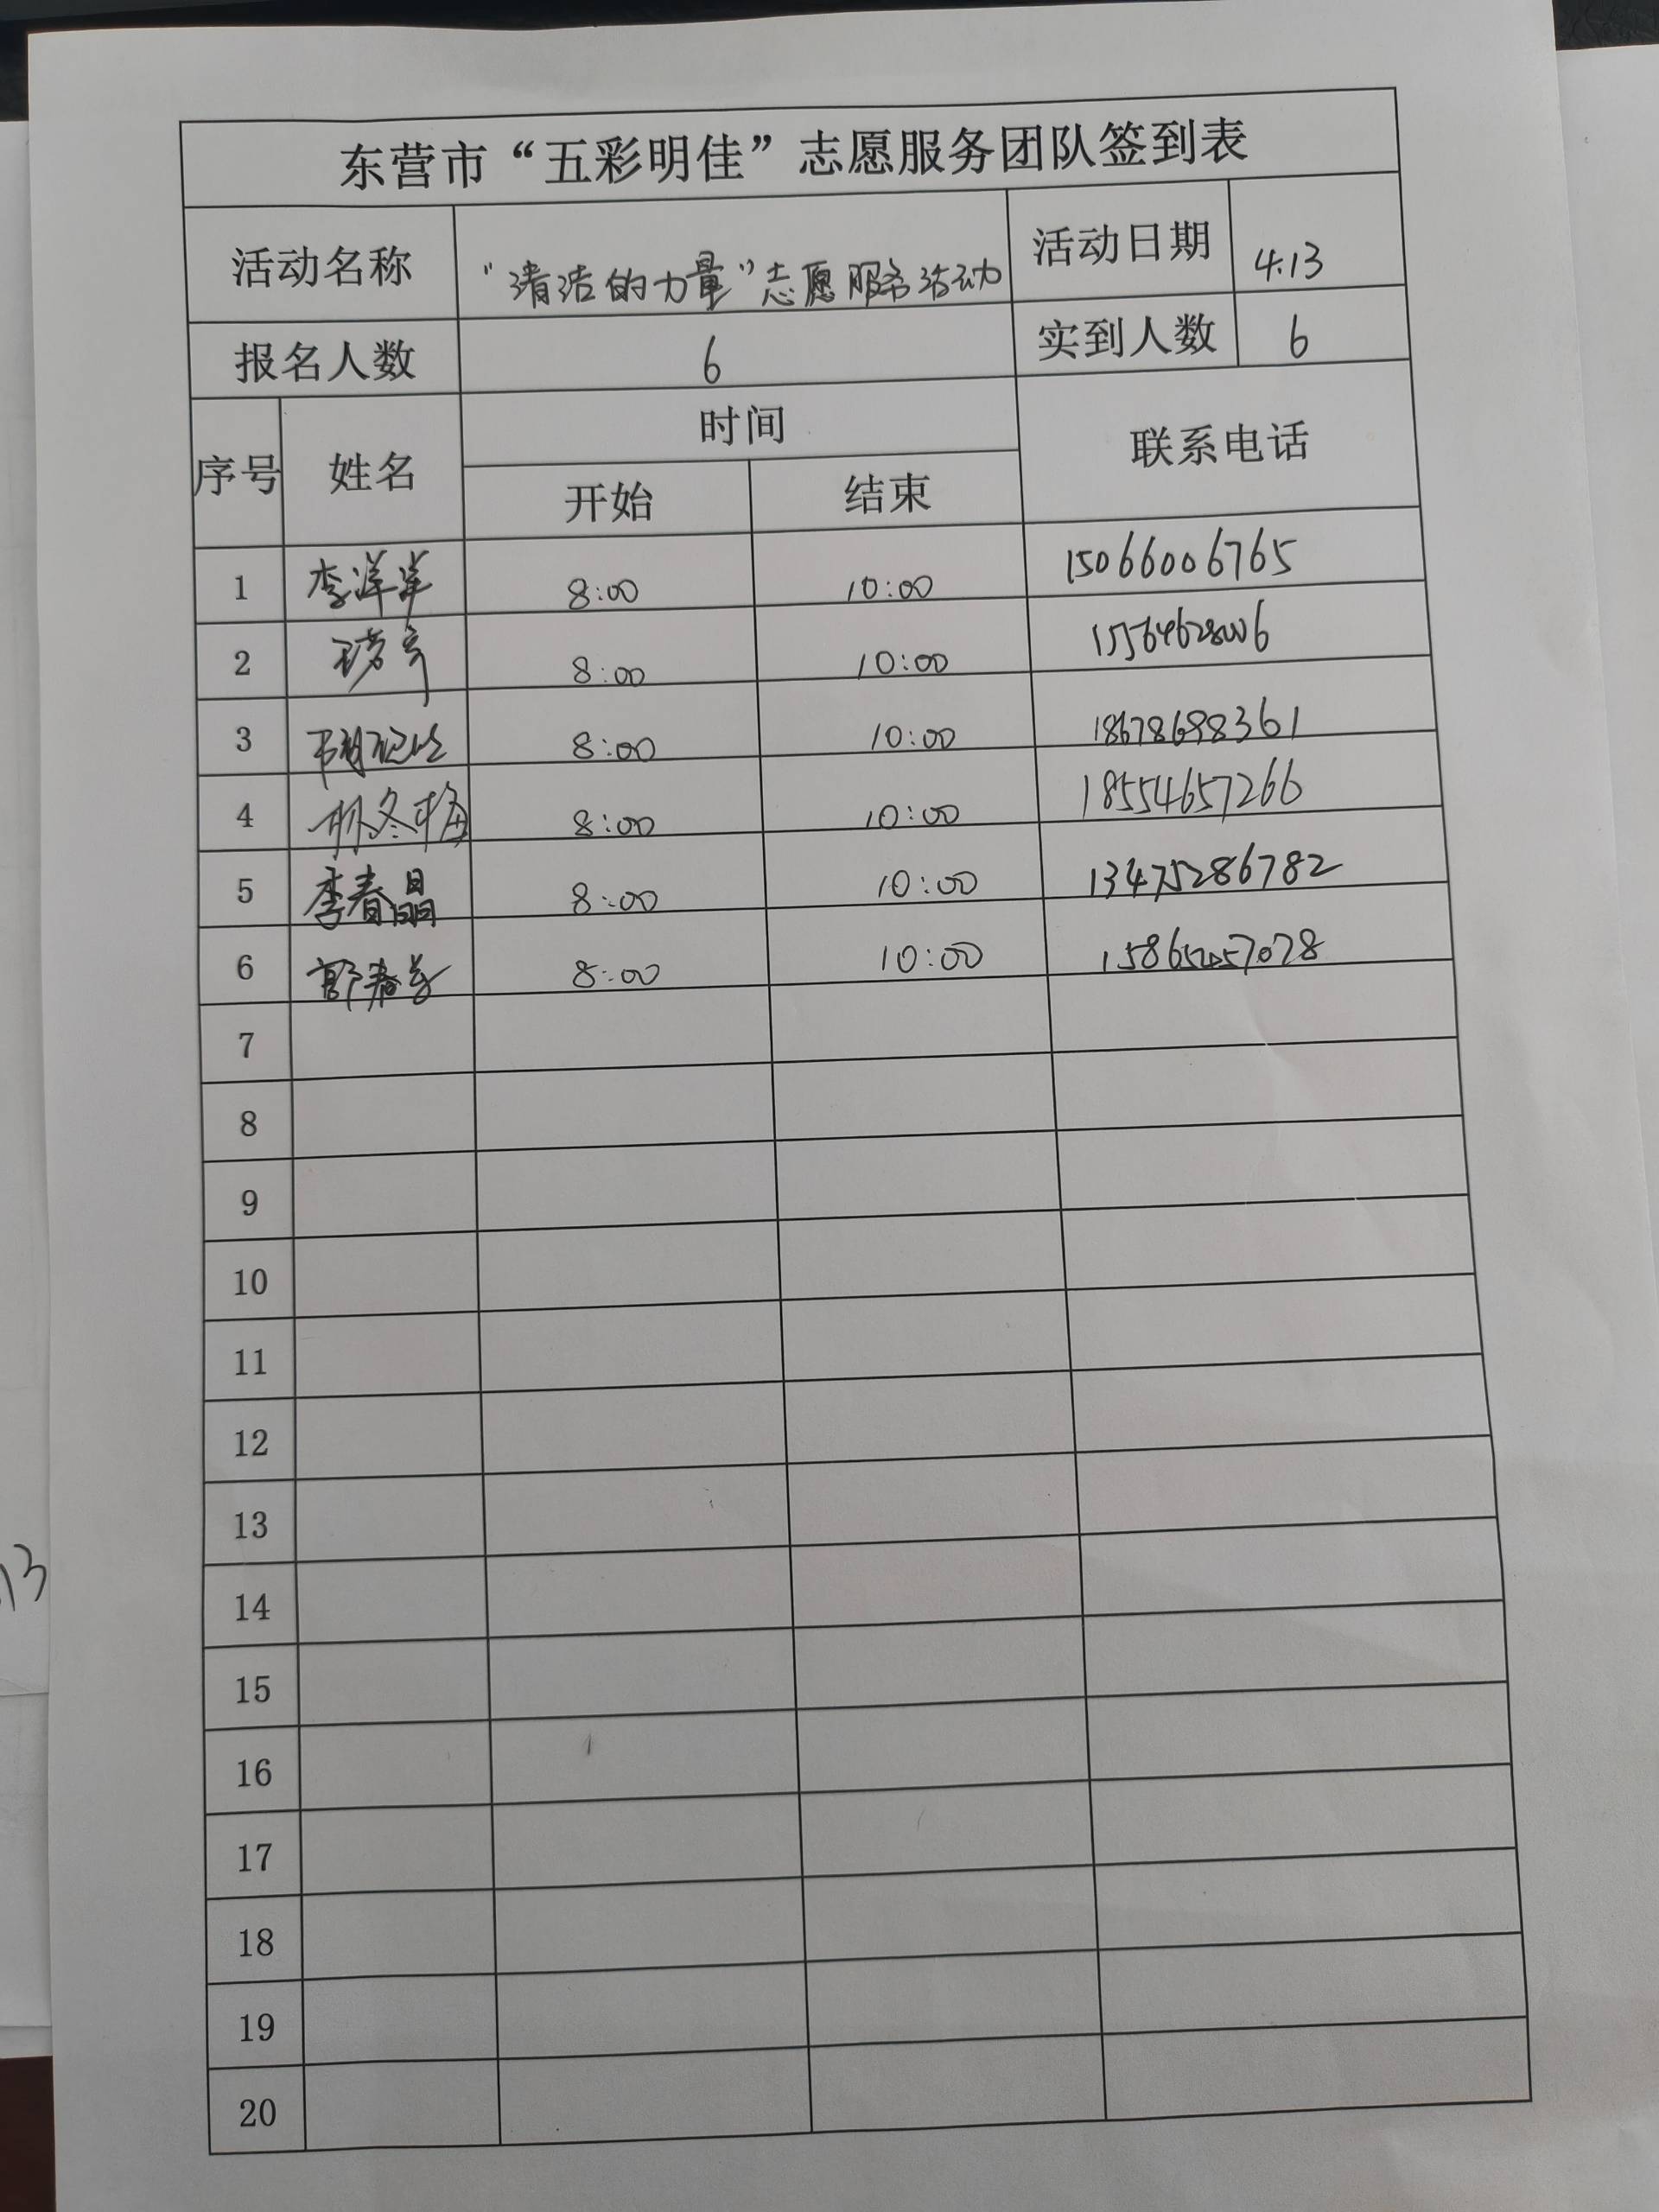 东营市“五彩明佳”志愿服务团队签到表
活动名称 “清洁的力量”志愿服务活动 活动日期 4.13
报名人数 6 实到人数 6
序号 姓名 时间 联系电话
开始 结束
1 李洋洋 8:00 10:00 15066006765
2 8:00 10:00
3 8:00 10:00 18678698361
4 林冬梅 8:00 10:00 18554657266
5 李春晶 8:00 10:00 13475286782
6 郭春芳 8:00 10:00
7
8
9
10
11
12
13
14
15
16
17
18
19
20
13